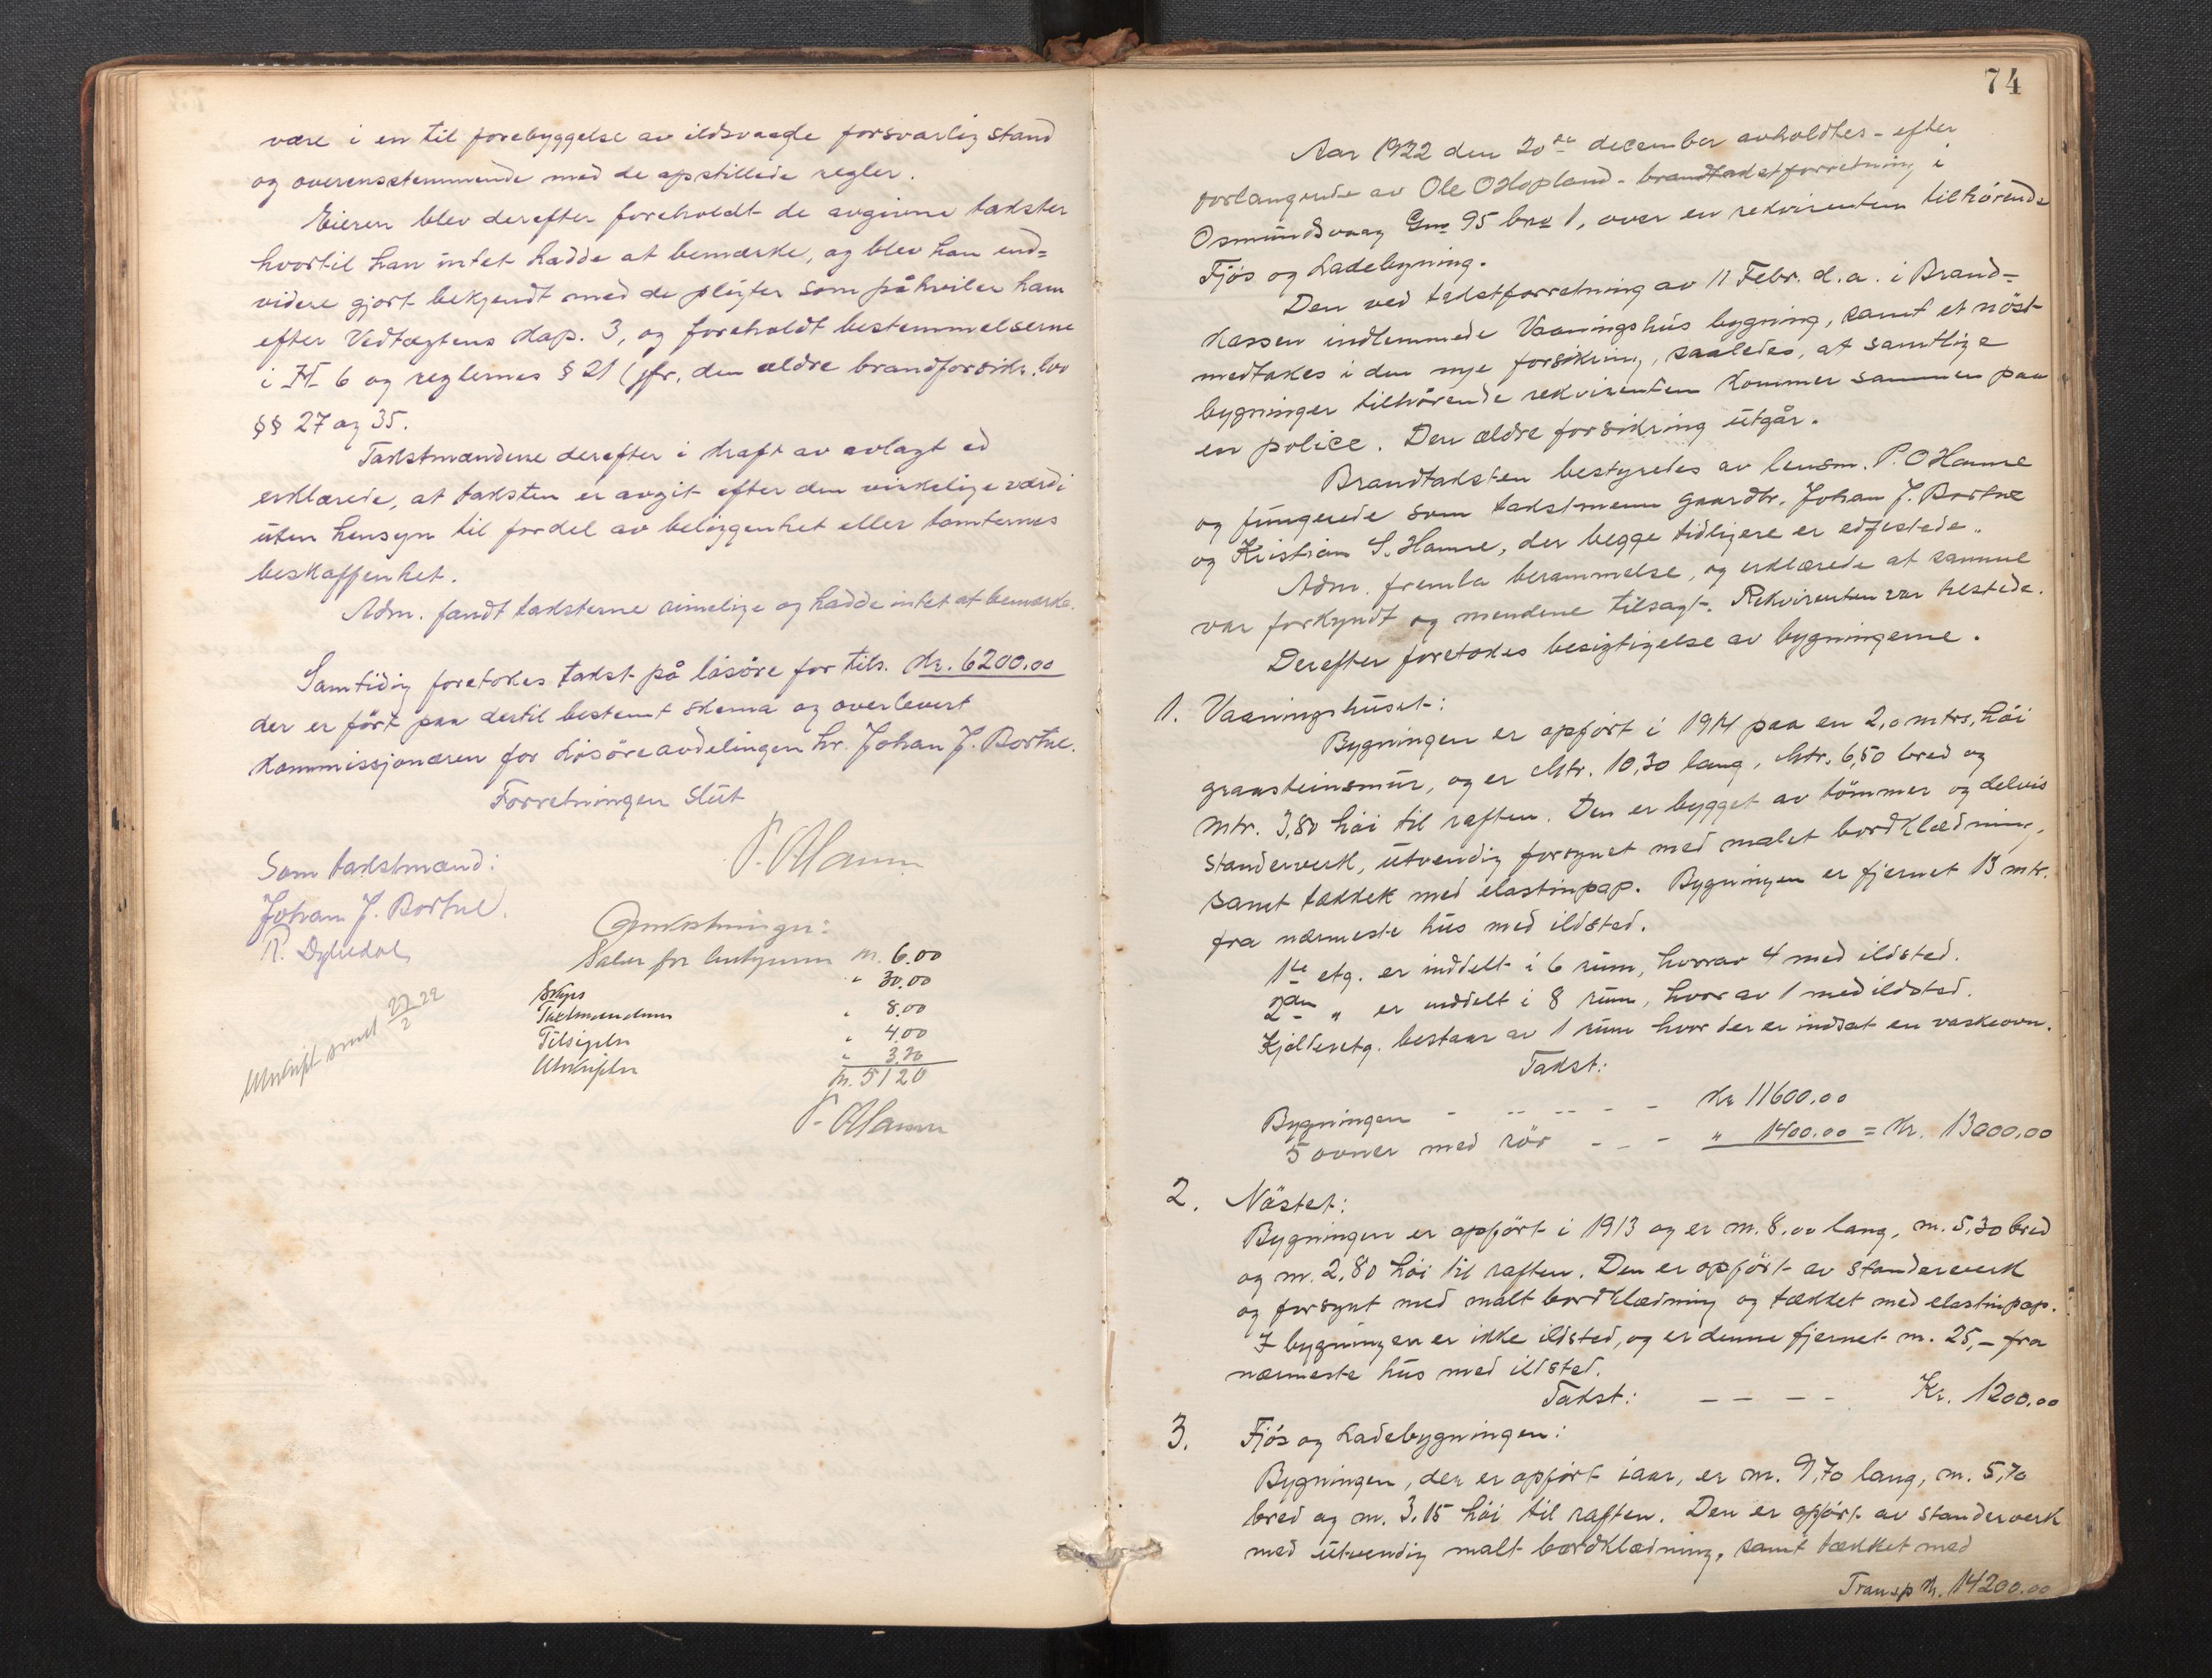 være i en til forebyggelse av ildsvaade forsvarlig stand
og overensstemmende med de opstillede regler.
Eieren blev derefter foreholdt de avgivne takster
hvortil han intet hadde at bemærke, og blev han end-
videre gjort bekjendt med de pligter som påhviler ham
efter Vedtægtens Kap. 3, og foreholdt bestemmelserne
i H 6 og reglernes § 21 (jfr. den ældre brandforsikr. lov
§§ 27 og 35.
Takstmændene derefter i kraft av avlagt ed
erklærede, at taksten er avgit efter den virkelige værdi
uten hensyn til fordel av beliggenhet eller tomternes
beskaffenhet.
Adm. fandt taksterne rimelige og hadde intet at bemærke.
Samtidig foretokes takst på løsøre for tils. Kr. 6200.00
der er ført paa dertil bestemt skema og overlevert
Kommissjonæren for Løsøreavdelingen hr. Johan J. Bortne.
Forretningen slut
P. O Hamre
Som takstmænd:
Johan J. Bortne.
R. Dyhedal
Omkostninger:
Salær for bestyreren Kr. 6.00
Skyss " 30.00
Takstmændene " 8.00
Tilsigelse " 4.00
Utskriften " 3.20
Kr. 51 20
P. O Hamre
Utskrift sendt 27/2 22
74
Aar 1922 den 20de december avholdtes - efter
forlangende av Ole O Hopland - brandtakstforretning i
Osmundsvaag Gno 95 bno 1, over en rekvirenten tilhørende
Fjøs og Ladebygning.
Den ved takstforretning av 11 Febr. d.a. i Brand-
Kassen indlemmede Vaaningshus bygning, samt et nøst
medtakes i den nye forsikring, saaledes, at samtlige
bygninger tilhørende rekvirenten kommer sammen paa
en police. Den ældre forsikring utgår.
Brandtaksten bestyredes av lensm. P. O Hamre
og fungerede som takstmenn gaardbr. Johan J. Bortne
og Kristian S. Hamre, der begge tidligere er edfestede.
Adm. fremla berammelse, og erklærede at samme
var forkyndt og mendene tilsagt. Rekvirenten var tilstede.
Derefter foretokes besigtigelse av bygningerne.
1. Vaaningshuset:
Bygningen er opført i 1914 paa en 2,0 mtrs, høi
graasteinsmur, og er Mtr. 10,30 lang, Mtr. 6,50 bred og
Mtr. 3,80 høi til raften. Den er bygget av tømmer og delvis
standerverk, utvendig forsynet med malet bordklædning,
samt tækkek med elastinpap. Bygningen er fjernet 13 mtr.
fra nærmeste hus med ildsted.
1ste etg. er inddelt i 6 rum, hvorav 4 med ildsted.
2den " er inddelt i 8 rum, hvor av 1 med ildsted.
Kjelderetg. bestaar av 1 rum hvor der er indsat en vaskeovn.
Takst:
Bygningen - -- -- - - Kr 11600.00
5 ovner med rør - - - " 1400.00 = Kr. 13000,00
2. Nøstet:
Bygningen er opført i 1913 og er m. 8.00 lang, m. 5,30 bred
og m. 2,80 høi til raften. Den er opført av standerverk
og forsynt med malt bordklædning og tækket med elastinpap.
I bygningen er ikke ildsted, og er denne fjernet m. 25,- fra
nærmeste hus med ildsted.
Takst: - - - - Kr. 1200.00
3. Fjøs og Ladebygningen:
Bygningen, der er opført iaar, er m. 9,70 lang, m. 5,70
bred og m. 3.15 høi til raften. Den er opført av standerverk
med utvendig malt bordklædning, samt tækket med
Transp Kr. 14200.00